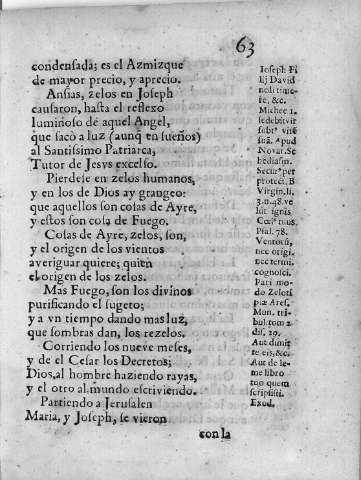 63
condensada; es el Azmizque
de mayor precio, y aprecio.
Ansias, zelos en Joseph
causaron, hasta el reflexo
luminoso de aquel Angel,
que sacò a luz (aunq en sueños)
al Santissimo Patriarca,
Tutor de Jesvs excelso.
Pierdese en zelos humanos,
y en los de Dios ay grangeo:
que aquellos son cosas de Ayre,
y estos son cosa de Fuego.
Cosas de Ayre, zelos, son,
y el origen de los vientos
averiguar quiere; quien
el origen de los zelos.
Mas Fuego, son los divinos
purificando el sugeto;
y a vn tiempo dando mas luz,
que sombras dan, los rezelos.
Corriendo los nueve meses,
y de el Cesar los Decretos;
Dios, al hombre haziendo rayas,
y el otro al mundo escriviendo.
Partiendo a Jerusalen
Maria, y Joseph, se vieron
con la
Joseph Fi
lij David
noli time-
re, &c.
Michee 1.
sedebit vir
subt° vité
suã. Apud
Novar. Se
dediasm.
Secur° per
protect. B
Virgin. li.
3. n. 48. ve
lut ignis
Psal. 78.
Ventorũ,
nec origi.
nec termi.
cognosci.
Pari mo-
do Zeloti
piæ Ares.
Mun. tri-
bul. tom 2
dis. 29.
Aut dimit
te eis, &c.
Aut de le-
me libro
tuo quem
scripsisti.
Exod.